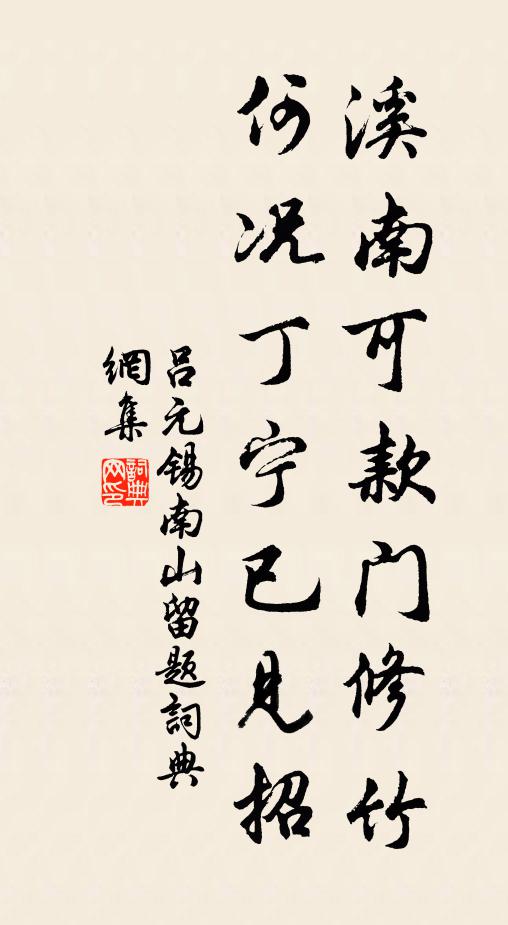 溪南可款门修竹
何况丁宁已见招
吕元锡南山留题詞典
網集
詞典网印